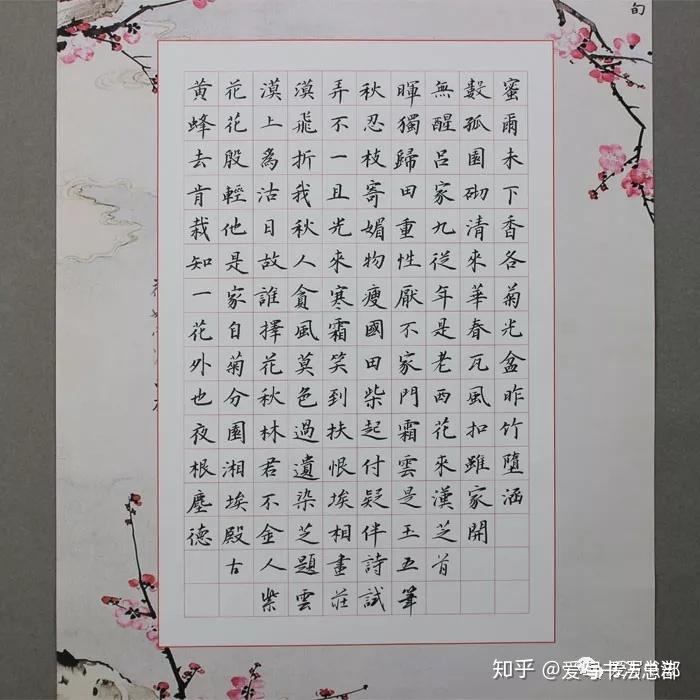 黄花漠漠弄秋暉無數蜜
蜂花上飛不忍獨醒孤爾
去殷爲折一枝歸呂園未
肯輕沽我且寄田家砌下
栽他日秋光媚重九清香
知是故人來物性從來各
一家誰貪寒瘦厭年華菊
花自擇風霜國不是春光
外菊花莫笑田家老瓦盆
也分秋色到柴門西風昨
夜園林過扶起霜花扣竹
根湘君遺恨付雲來雖墮
塵埃不染埃疑是漢家涵
德殿金芝相伴玉芝開
古人題畫詩五首
紫雲莊試筆
旬
知乎